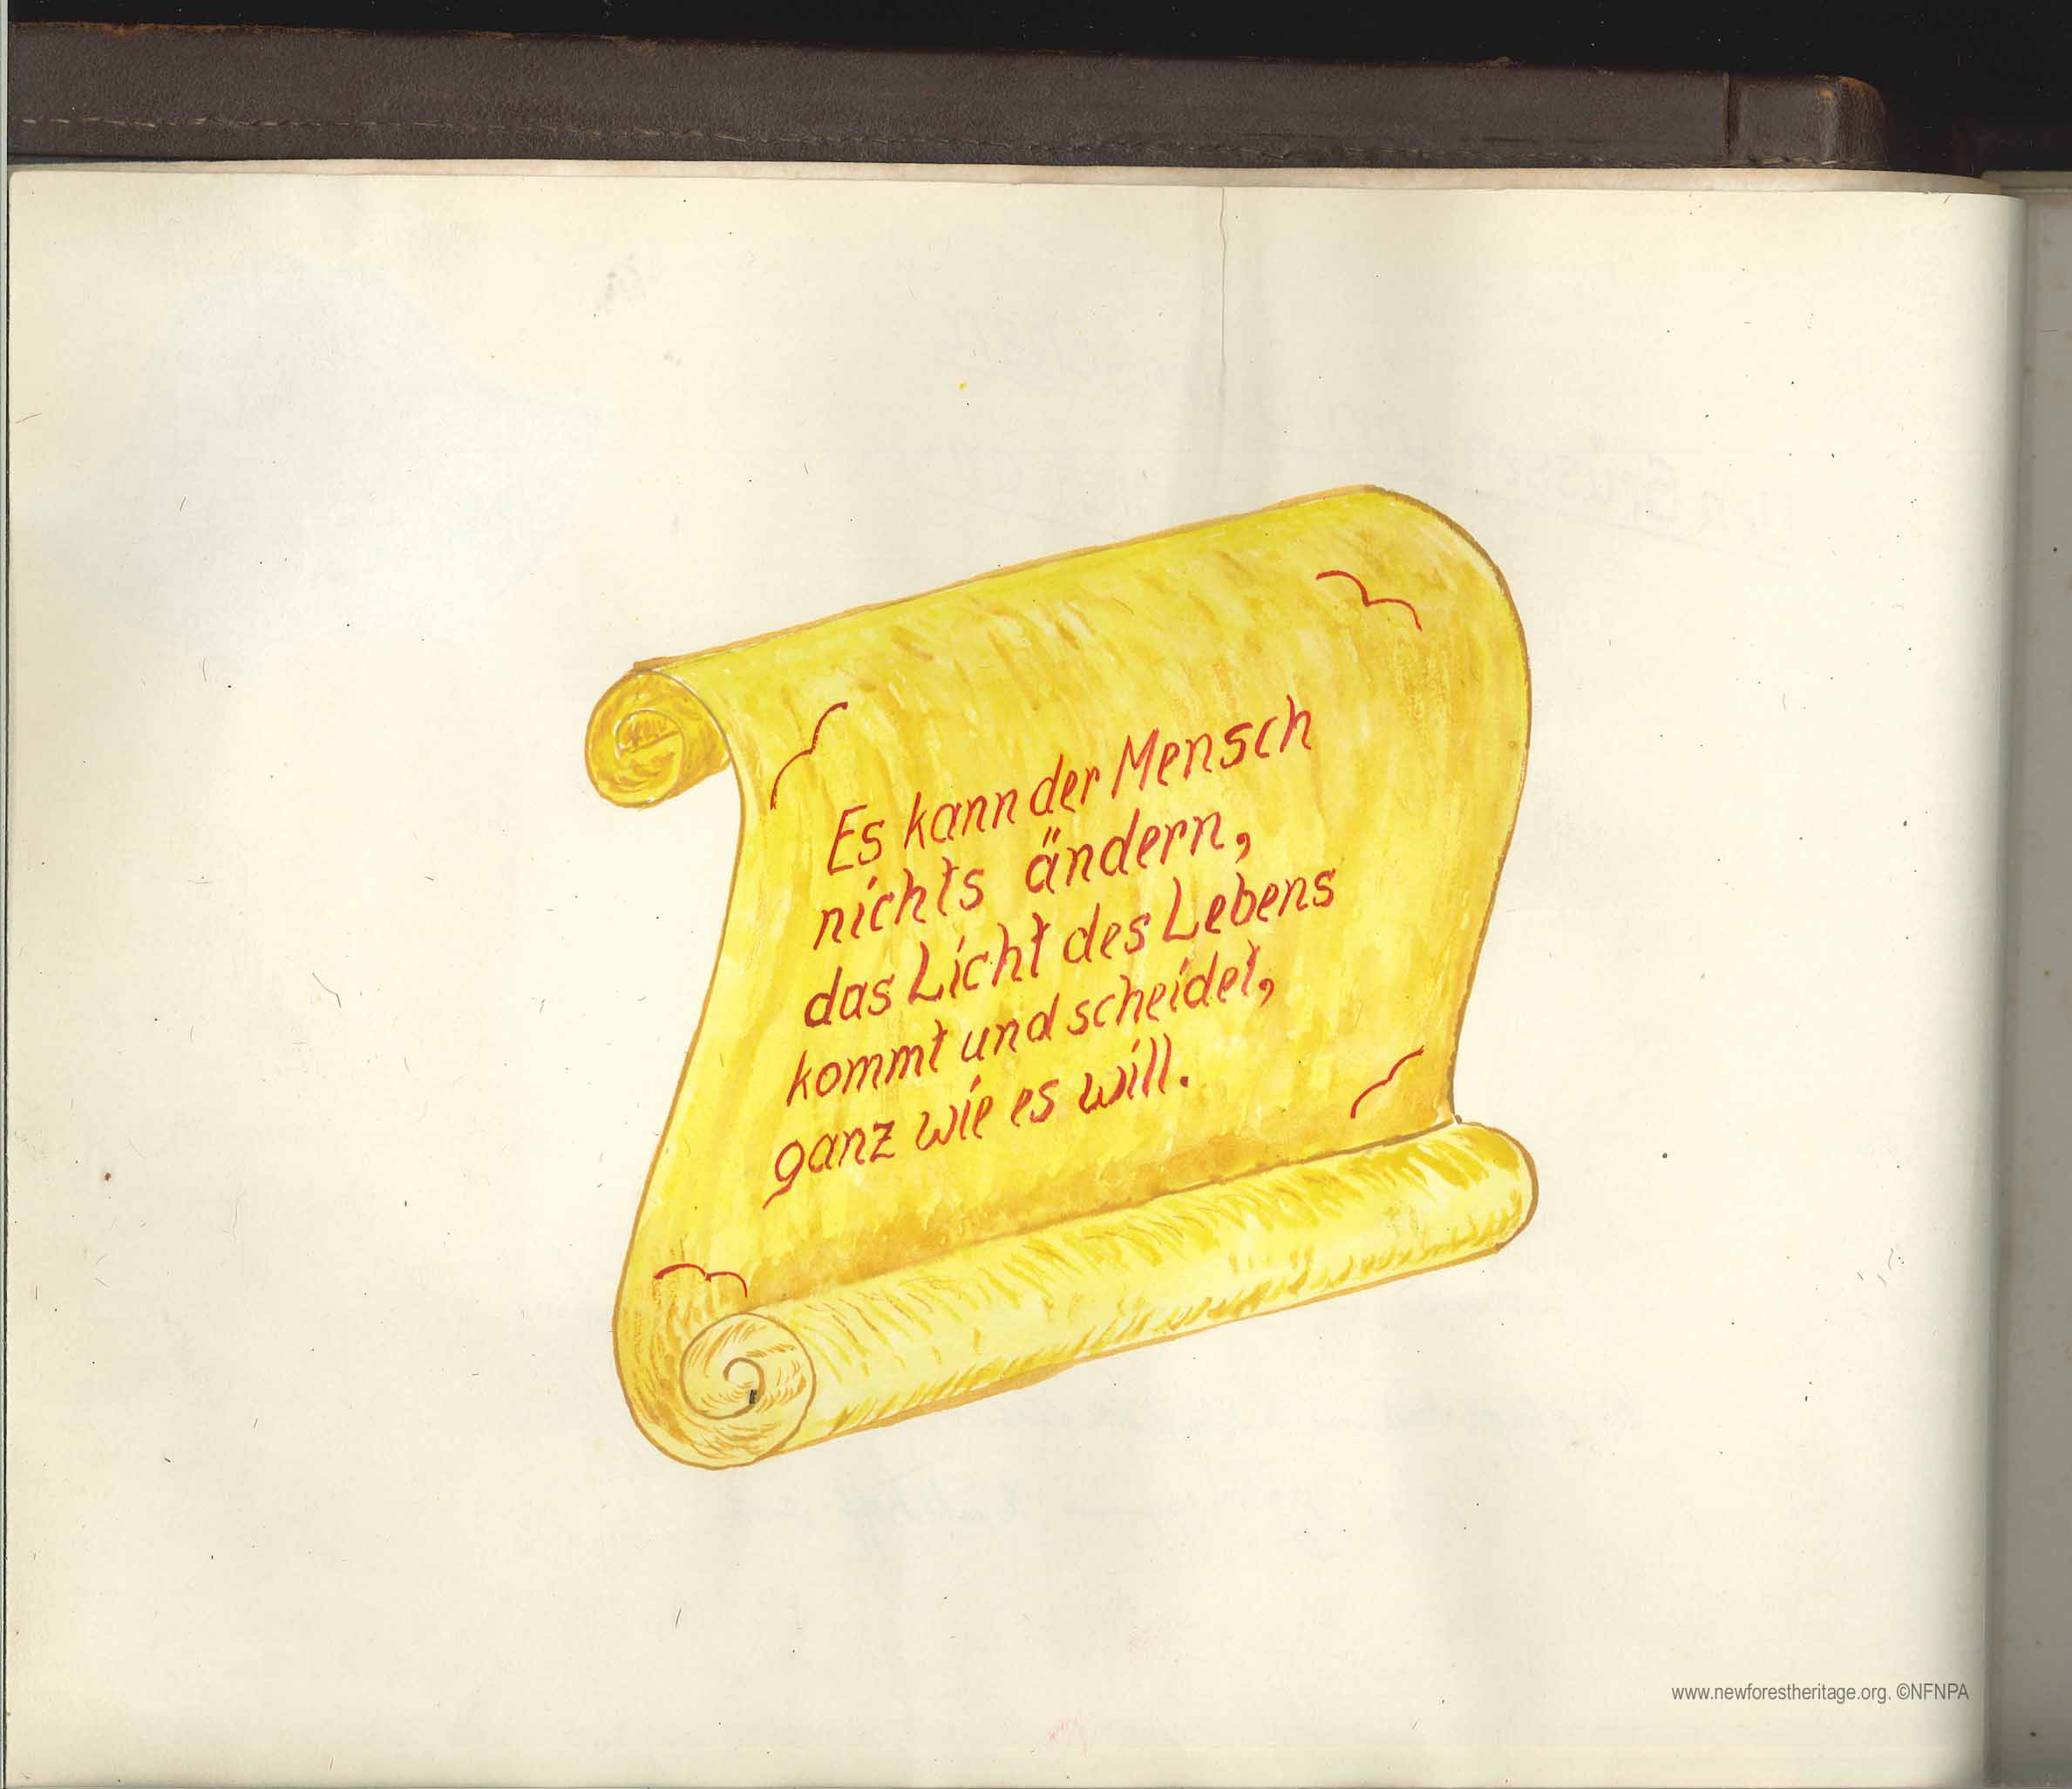 Es kann der Mensch
nichts ändern,
das Licht des Lebens
kommt und scheidet,
ganz wie es will.
www.newforestheritage.org. ©NFNPA